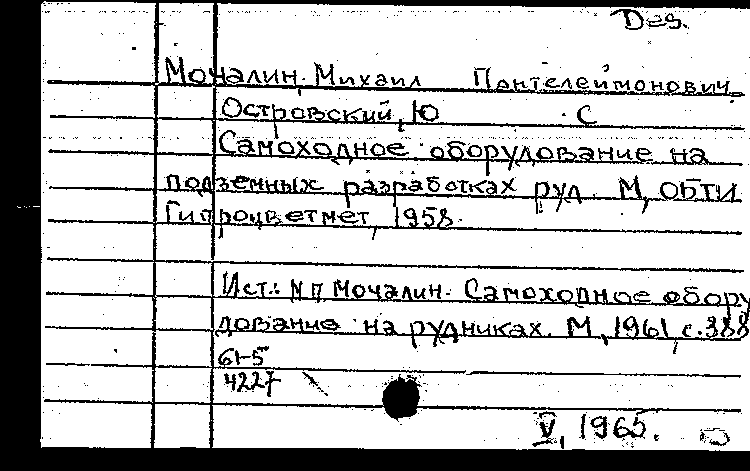 Des.
Мочалин, Михаил Пантелеймонович.
Островский, Ю С
Самоходное оборудование на
подземных разработках руд. М, ОБТИ
Гипроцветмет, 1958.
Ист.: М П Мочалин. Самоходное обору
дование на рудниках. М, 1961, с. 388
61-5
4227
V, 1965.